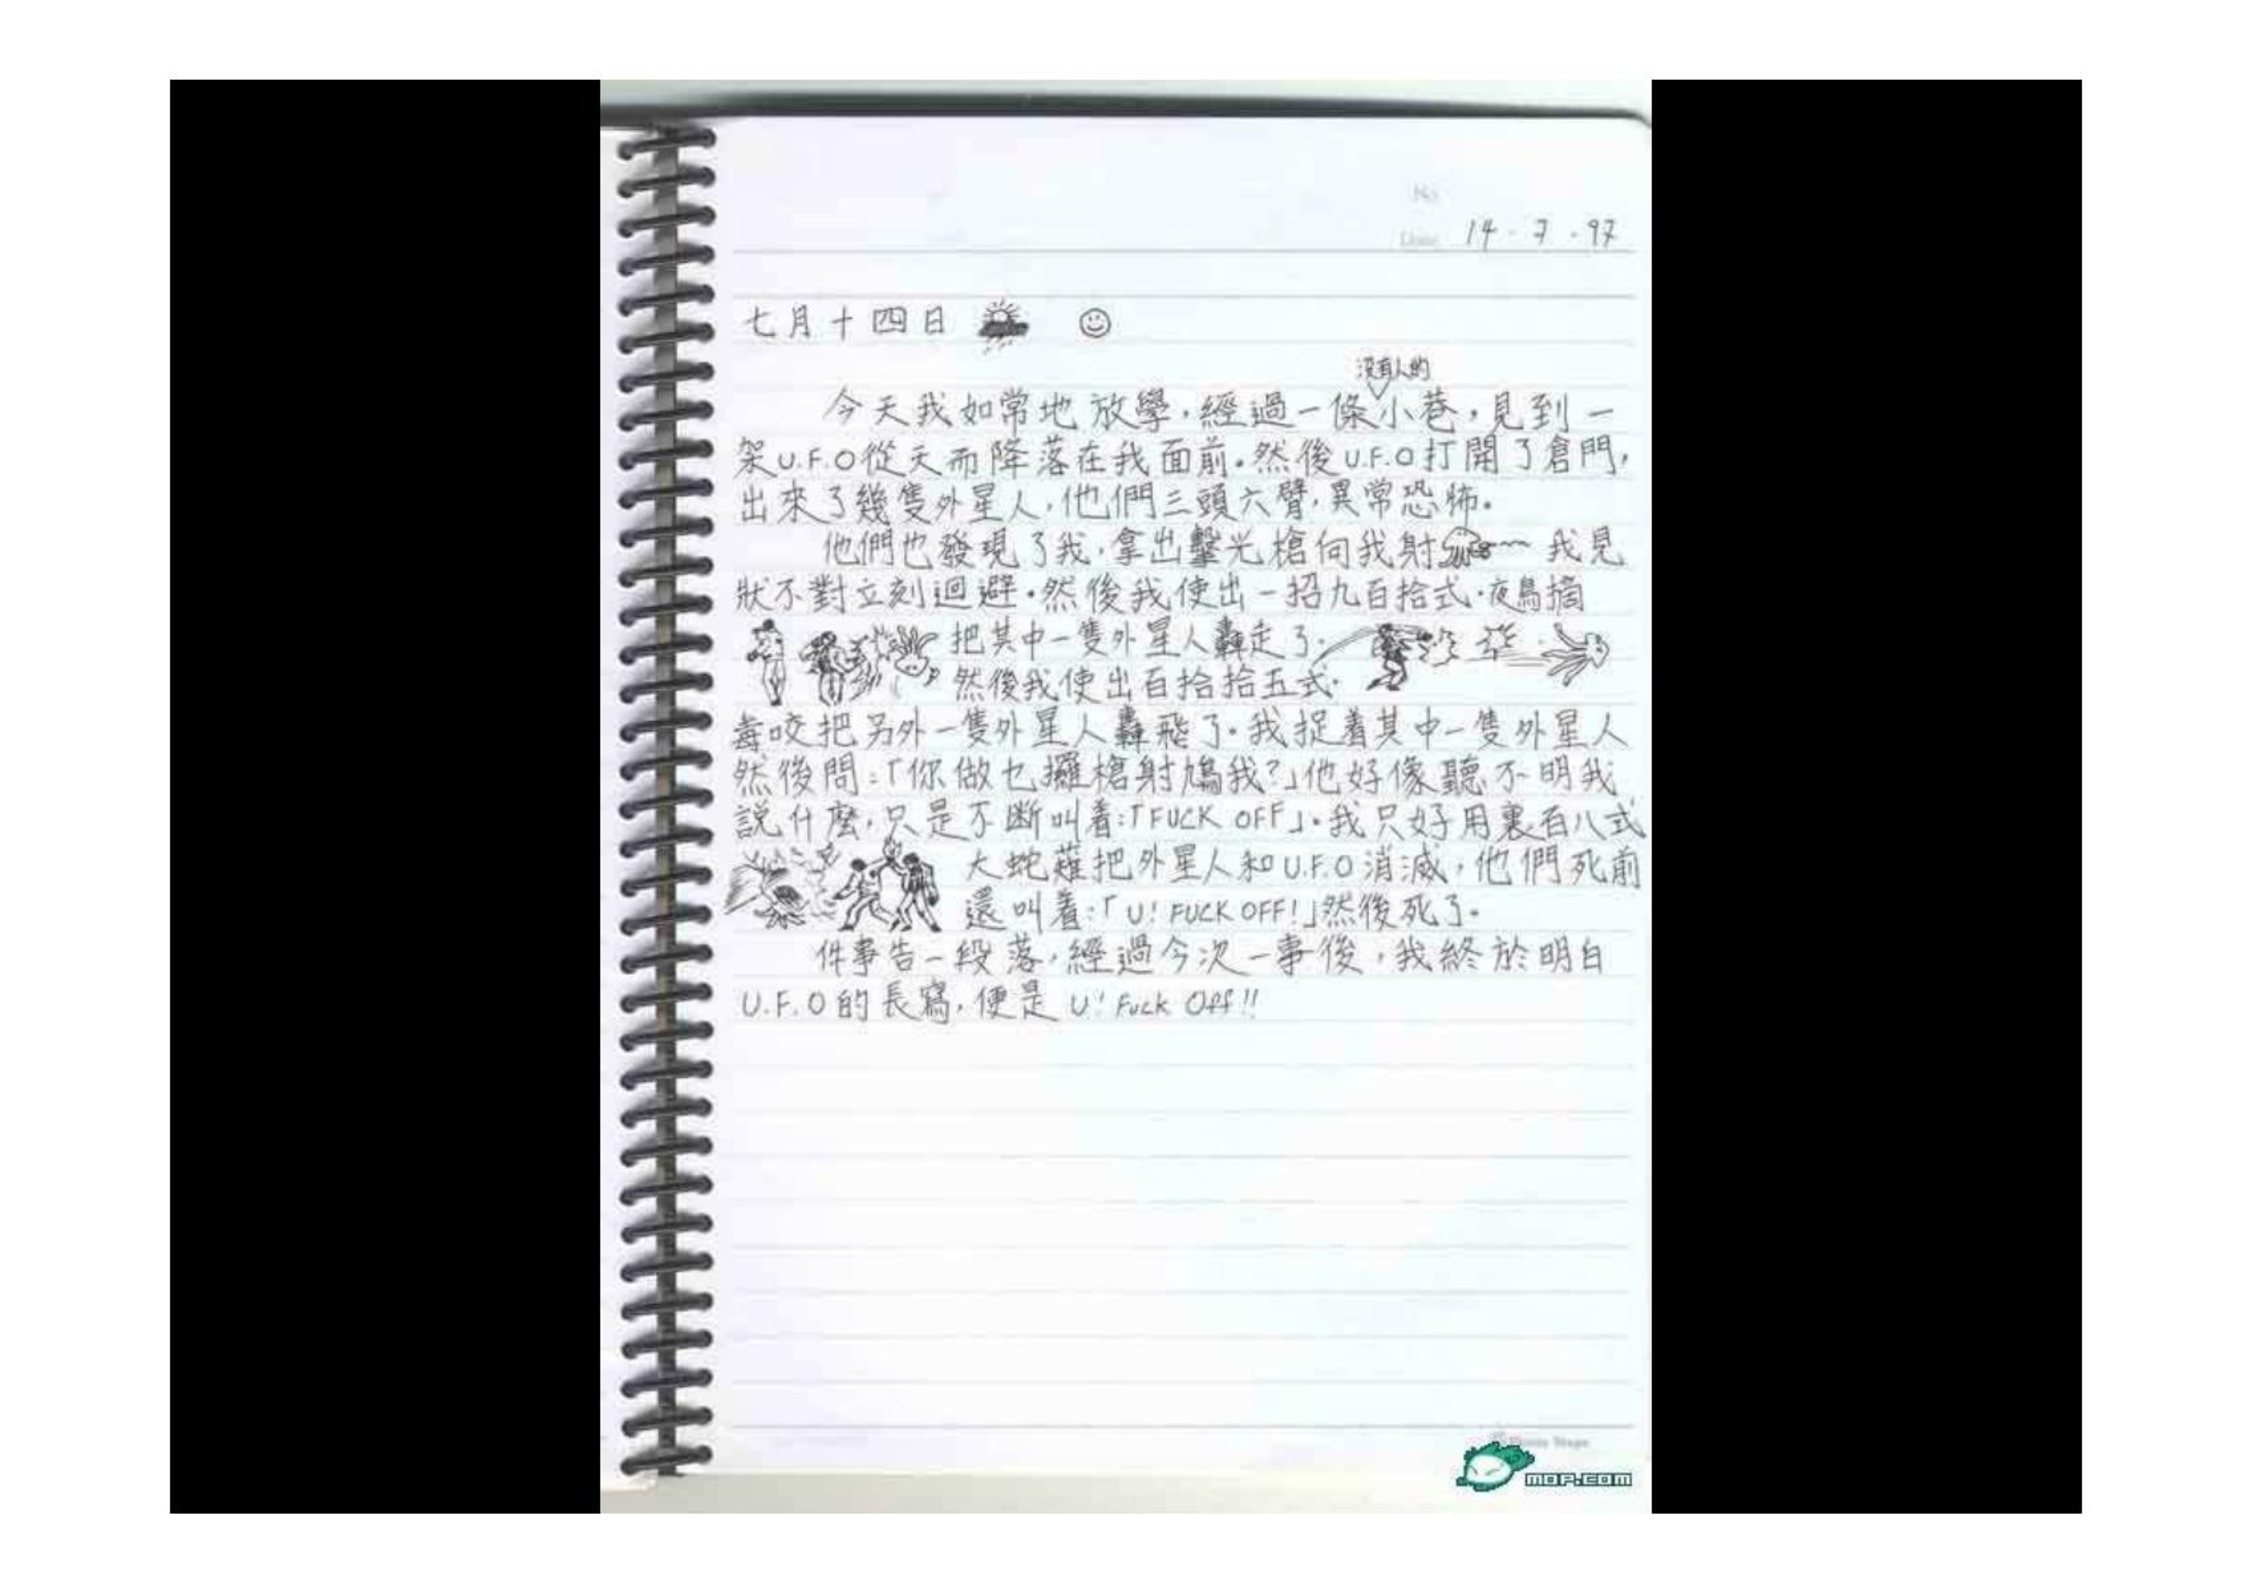 No.
Date 14・7・97
七月十四日
沒有人的
今天我如常地放學,經過一條小巷,見到一
架U.F.O從天而降落在我面前。然後U.F.O打開了倉門,
出來了幾隻外星人,他們三頭六臂,異常恐怖。
他們也發現了我,拿出擊光槍向我射 我見
狀不對立刻迴避。然後我使出一招九百拾式·夜鳥摘
把其中一隻外星人轟走了。
然後我使出百拾拾五式·
毒咬把另外一隻外星人轟飛了。我捉着其中一隻外星人
然後問:「你做乜攞槍射鳩我?」他好像聽不明我
說什麼,只是不斷叫着:「FUCK OFF」。我只好用裏百八式
大蛇薙把外星人和U.F.O消滅,他們死前
還叫着:「U! FUCK OFF!」然後死了。
件事告一段落,經過今次一事後,我終於明白
U.F.O的長寫,便是 U! Fuck Off!!
MOP.COM